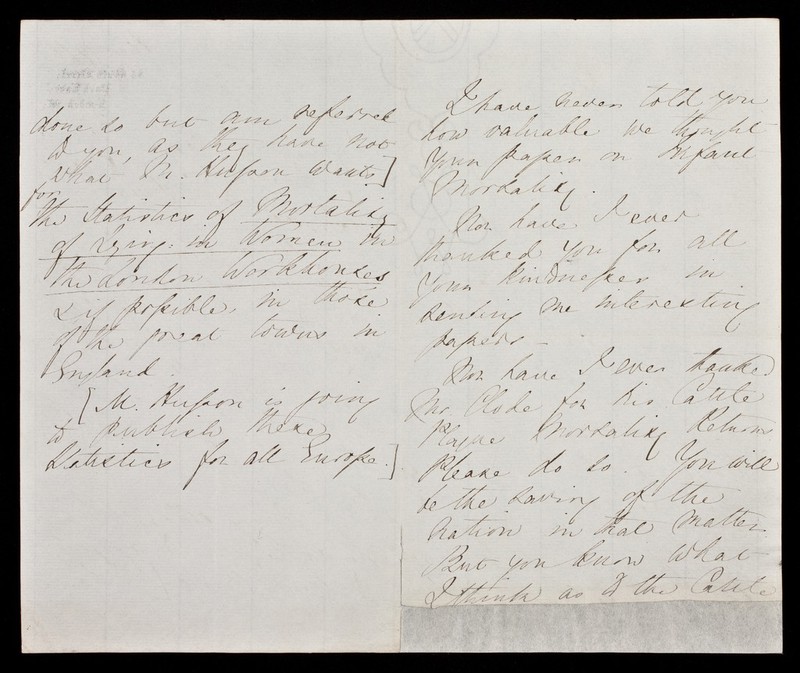 done so but am referred
to you, as they have not
what M. Husson wants]
for
the Statistics of Mortality
of Lying-in Women in
the London Workhouses
& if possible, in those
of the great towns in
England.
[M. Husson is going
to publish these
Statistics for all Europe.]
I have never told you
how valuable we thought
your paper on Infant
Mortality.
Nor have I ever
thanked you for all
your kindnesses in
sending me interesting
papers –
Nor have I ever thanked
Mr. Clode for his Cattle
Plague Mortality Returns
Please do so. You will
be the saving of the
nation in that matter.
But you know what
I think as to the Cattle